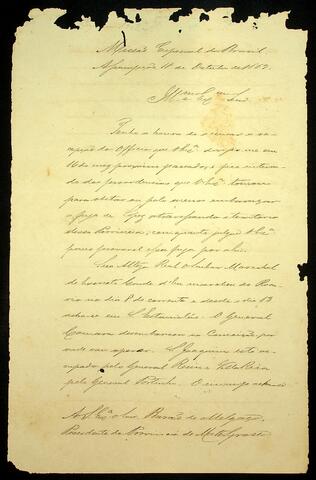 Missão Especial do Brasil
Assumpção 11 de Outubro de 1869.
Illmo e Exmo Snr
Tenho a honra de accusar a re-
cepção do Officio que V. Exª dirigio-me em
16 do mez proximo passado, e fico inteira-
do das providencias que V. Exª tomou
para obstar ou pelo menos embaraçar
a fuga de Lopez atravessando o territorio
dessa Provincia; com quanto julgue V. Exª
pouco provavel essa fuga por ahi.
Sua Alteza Real o Senhor Marechal
de Exercito Conde d'Eu marchou do Ro-
sario no dia 8 do corrente e desde o dia 13
acha-se em S. Estanisláo. O General
Camara desembarcou na Conceição, por
onde vai operar. S. Joaquim está oc-
cupado pelo General Resin e Villa Rica
pelo General Portinho. O inimigo acha-se
A S. Exª o Snr Barão de Melgaço,
Presidente da Provincia de Mato Grosso